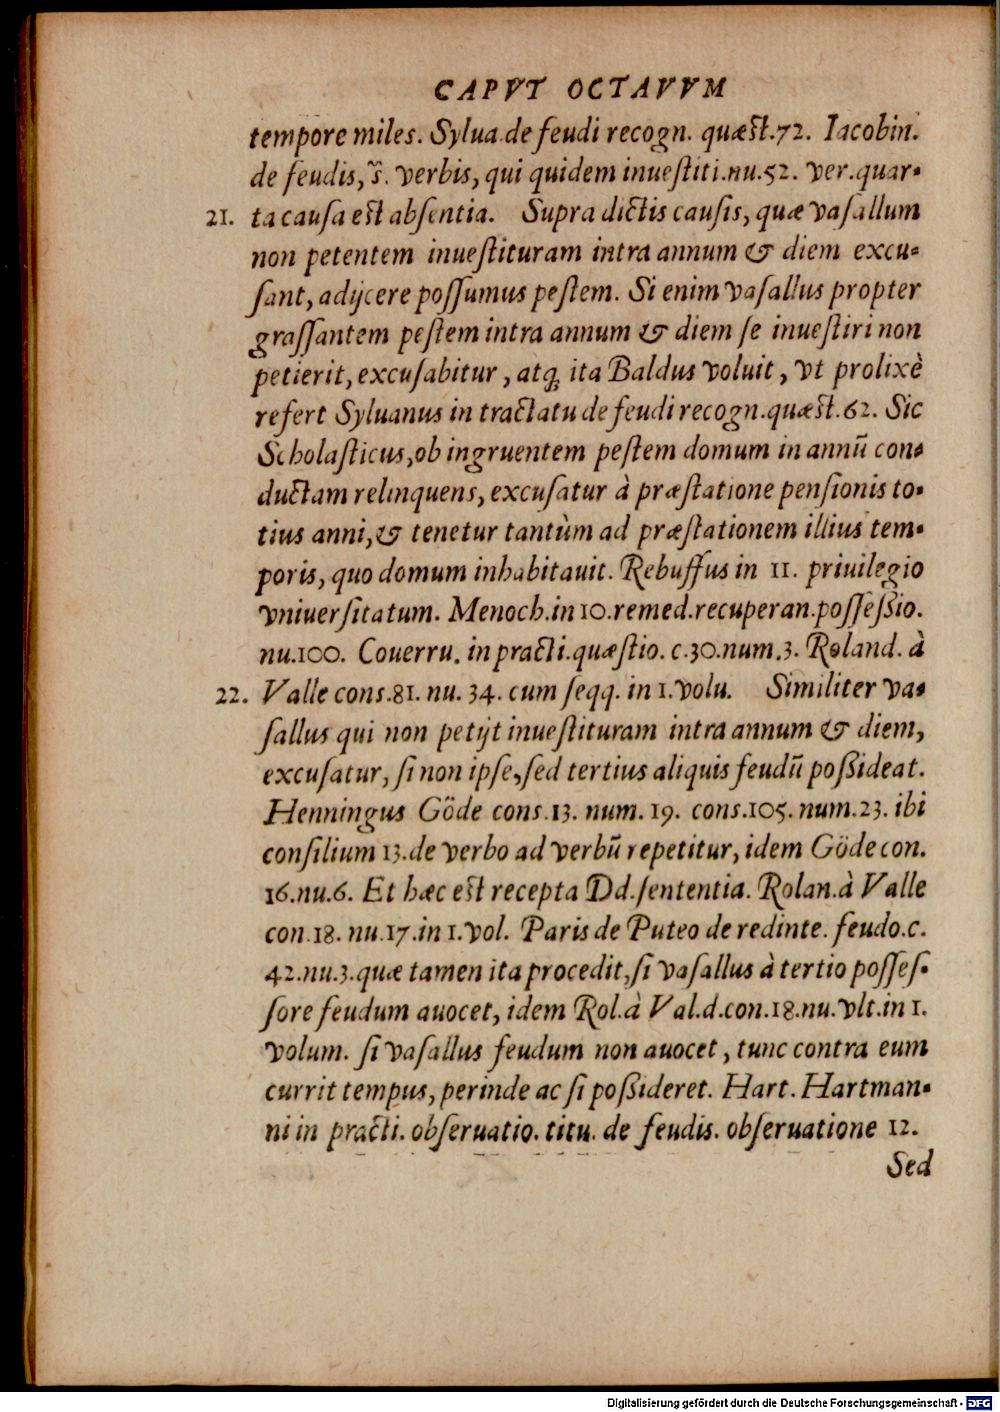 CAPVT OCTAVVM
tempore miles. Sylua.de feudi recogn. quæst.72. Iacobin.
de feudis, §. verbis, qui quidem inuestiti.nu.52. ver.quar-
21. ta causa est absentia. Supra dictis causis, quæ vasallum
non petentem inuestituram intra annum & diem excu-
sant, adijcere possumus pestem. Si enim vasallus propter
grassantem pestem intra annum & diem se inuestiri non
petierit, excusabitur, atq; ita Baldus voluit, vt prolixè
refert Syluanus in tractatu de feudi recogn.quæst.62. Sic
Scholasticus, ob ingruentem pestem domum in annũ con-
ductam relinquens, excusatur à præstatione pensionis to-
tius anni, & tenetur tantùm ad præstationem illius tem-
poris, quo domum inhabitauit. Rebuffus in 11. priuilegio
vniuersitatum. Menoch.in 10.remed.recuperan.possessio.
nu.100. Couerru. in practi.quæstio. c.30.num.3. Roland. à
22. Valle cons.81. nu. 34. cum seqq. in 1.volu. Similiter va-
sallus qui non petijt inuestituram intra annum & diem,
excusatur, si non ipse, sed tertius aliquis feudũ possideat.
Henningus Göde cons.13. num. 19. cons.105. num.23. ibi
consilium 13.de verbo ad verbũ repetitur, idem Göde con.
16.nu.6. Et hæc est recepta Dd.sententia. Rolan.à Valle
con.18. nu.17.in 1.vol. Paris de Puteo de redinte. feudo.c.
42.nu.3.quæ tamen ita procedit, si vasallus à tertio posses-
sore feudum auocet, idem Rol.à Val.d.con.18.nu.vlt.in 1.
volum. si vasallus feudum non auocet, tunc contra eum
currit tempus, perinde ac si possideret. Hart. Hartman-
ni in practi. obseruatio. titu. de feudis. obseruatione 12.
Sed
Digitalisierung gefördert durch die Deutsche Forschungsgemeinschaft - DFG